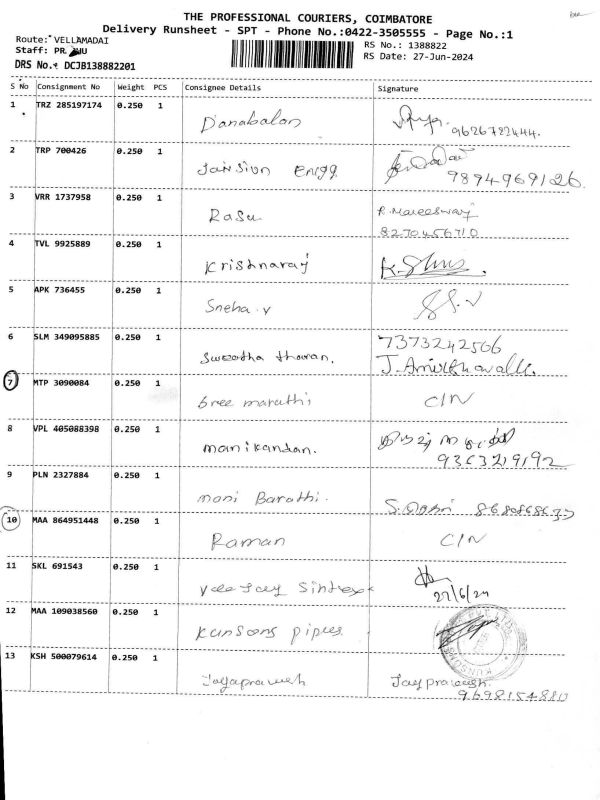 THE PROFESSIONAL COURIERS, COIMBATORE
Delivery Runsheet - SPT - Phone No.:0422-3505555 - Page No.:1
Route: VELLAMADAI
Staff:
RS No.: 1388822
RS Date: 27-Jun-2024
DRS No.: DCJB138882201
S No Consignment No Weight PCS Consignee Details Signature
1 TRZ 285197174 0.250 1 Danabalan 9626782444.
2 TRP 700426 0.250 1 Jaision Engg 9894969126
3 VRR 1737958 0.250 1 Rasu R. Mareeswari
8270456710
4 TVL 9925889 0.250 1 Krishnaraj
5 APK 736455 0.250 1 Sneha v
6 SLM 349095885 0.250 1 7373242566
Sweatha tharan. J. Amirthavalli.
7 MTP 3090084 0.250 1 Sree marathi C/N
8 VPL 405088398 0.250 1 manikandan.
9363219192
9 PLN 2327884 0.250 1 mani Barathi.
10 MAA 864951448 0.250 1 Raman C/N
11 SKL 691543 0.250 1 Veejay Sintex 27/6/24
12 MAA 109038560 0.250 1 Kansons pipes
13 KSH 500079614 0.250 1 Jayaprakash Jayprakash.
9698154880